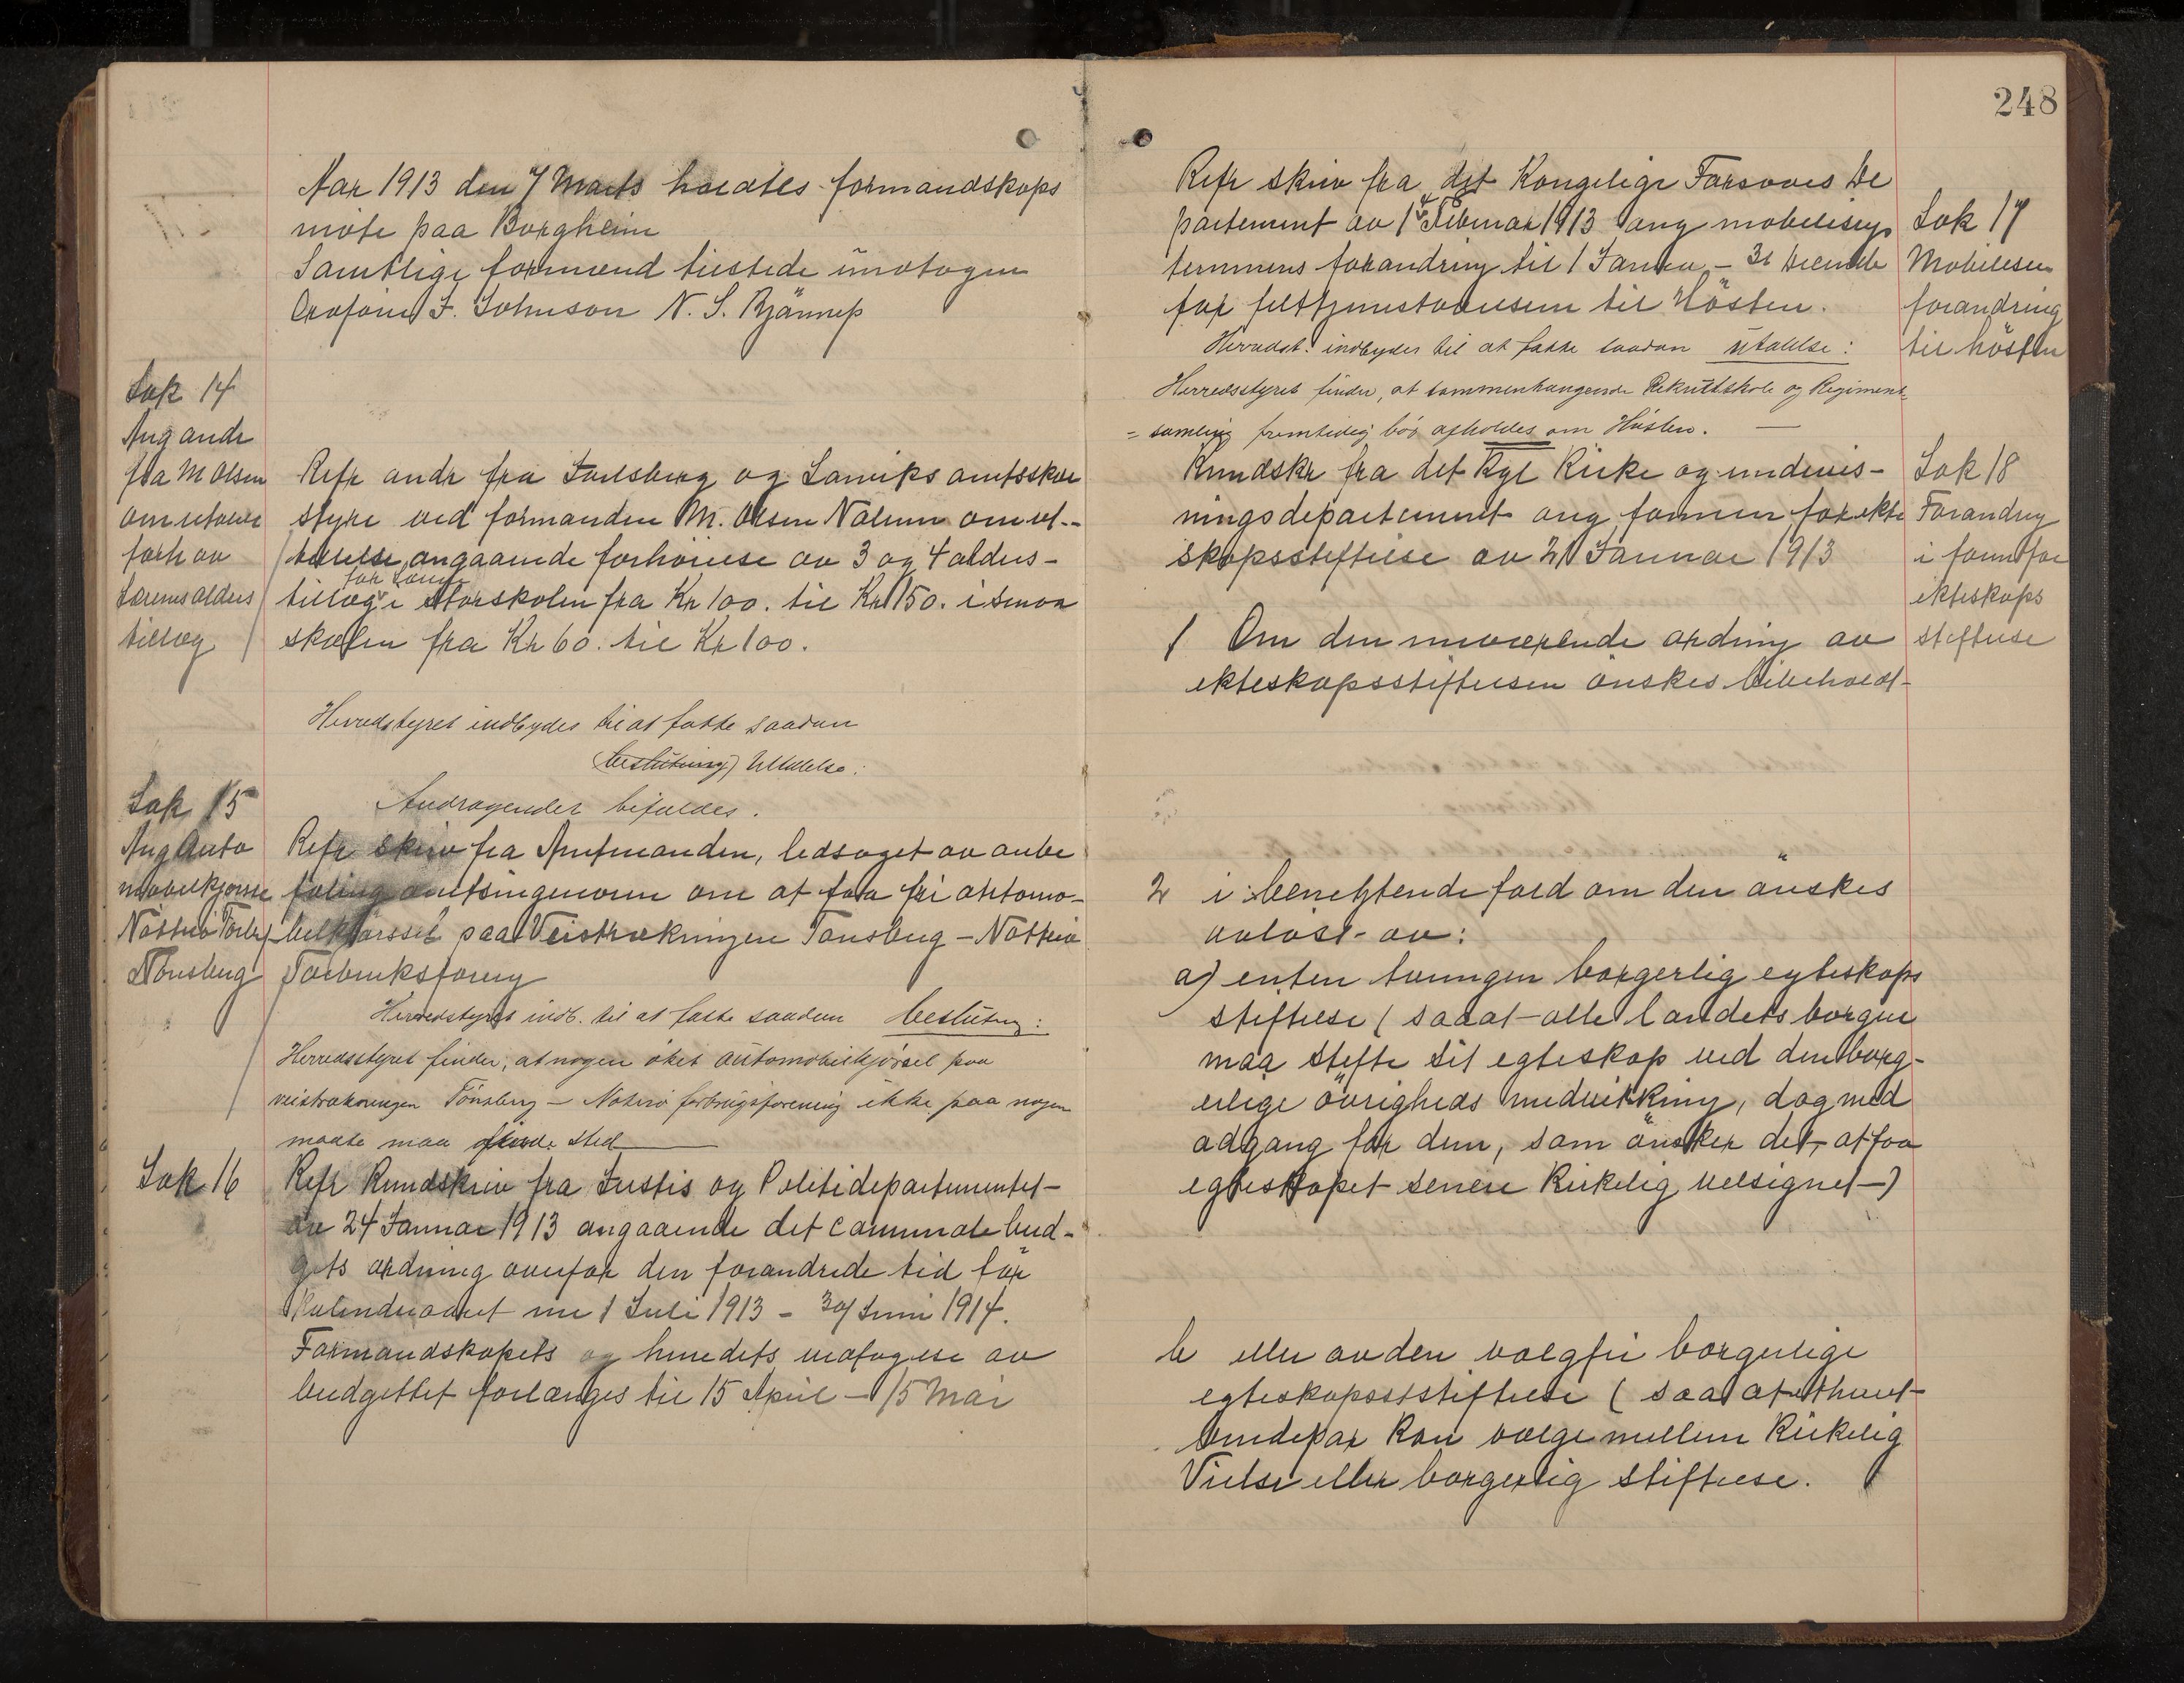 Aar 1913 den 7 Marts holdtes formandskaps
möte paa Borgheim
Samtlige formænd tilstede undtagen
J. Johnson N. S. Bjännes
Sak 14
Ang andr
fra M Olsen
om utalelse
forh av
Lærernes alders
tillæg
Refr andr fra Jarlsberg og Larviks amtsskole
styre ved formanden M. Olsen Nalum om ut-
talelse angaaende forhöielse av 3 og 4 alders-
for Lærere
tillæg i storskolen fra Kr 100. til Kr 150. i smaa
skolen fra Kr 60. til Kr 100.
Herredstyret indbydes til at fatte saadan
beslutning) Uttalelse:
Andragendet bifaldes.
Sak 15
Ang Auto
mobilkjörsel
Nötterö Torbr
Tönsberg
Refr skriv fra Amtmanden, ledsaget av anbe
faling amtsingeniören om at faa fri automo-
bilkjörssel paa Veistrækningen Tönsberg - Nötterö
Forbruksforeng
Herredstyret indb. til at fatte saadan beslutng:
Herredsstyret finder, at nogen öket automobilkjörsel paa
veistrækningen Tönsberg - Nöterö forbrugsforening ikke paa nogen
maate maa finde sted
Sak 16
Refr Rundskriv fra Justis og Politidepartementet
av 24 Januar 1913 angaaende det communale bud-
gets ordning overfor den forandrede tid for
Kalenderaaret nu 1 Juli 1913 - 30 Juni 1914.
Formandskapets og herredets vedtagelse av
budgettet forlænges til 15 April - 15 Mai
248
Refr skriv fra det Kongelige Forsvars De
partement av 14 Februar 1913 ang mobiliserings
terminens forandring til 1 Januar - 31 Decembr
for felttjenestövelsen til Hösten.
Herredst. indbydes til at fatte saadan utalelse:
Herredsstyret finder, at sammenhængende Rekrutskole og Regiments-
= samling fremtidig bör afholdes om Hösten.
Sak 17
Mobilisern
forandring
til hösten
Rundskr fra det Kgl Kirke og undervis-
ningsdepartement ang formen for ekte
skapsstiftelse av 21 Januar 1913
Sak 18
Forandring
i form for
ekteskaps
stiftelse
1 Om den nuværende ordning av
ekteskapsstiftelsen önskes bibeholdt
2 i benegtende fald om den önskes
avlöst av:
a) enten tvungen borgerlig egteskaps
stiftelse (saa at alle landets borgere
maa stifte sit egteskap ved den borg-
erlige övrigheds medvirkning, dog med
adgang for dem, som önsker det, at faa
egteskapet senere Kirkelig velsignet)
b eller av den valgfri borgerlige
egteskapsststiftelse (saa at ethvert
brudepar kan vælge mellem Kirkelig
Vielse eller borgerlig stiftelse.